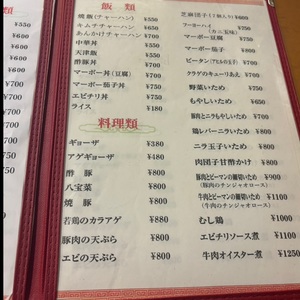 類
¥600
¥600
飯 類
焼飯(チャーハン) ¥550
キムチチャーハン ¥700
あんかけチャーハン ¥700
中華丼 ¥550
天津飯 ¥550
酢豚丼 ¥700
マーボー丼(豆腐) ¥700
マーボー茄子丼 ¥700
エビチリ丼 ¥700
ライス ¥180
料理類
ギョーザ ¥380
アゲギョーザ ¥480
酢 豚 ¥800
八宝菜 ¥800
焼 豚 ¥800
若鶏のカラアゲ ¥880
豚肉の天ぷら ¥800
エビの天ぷら ¥880
芝麻団子 ¥600
フーヨーハイ ¥750
(カニ玉味)
マーボー豆腐 ¥750
マーボー茄子 ¥700
ピータン ¥700
クラゲのキューリあえ ¥700
野菜いため ¥750
もやしいため ¥650
豚肉とニラもやしいため ¥700
鶏レバーニラいため ¥700
ニラ玉子いため ¥700
肉団子甘酢かけ ¥800
豚肉とピーマンの細切いため ¥900
(豚肉のチンジャオロース)
牛肉とピーマンの細切いため ¥1100
(牛肉のチンジャオロース)
むし鶏 ¥1000
エビチリソース煮 ¥1100
牛肉オイスター煮 ¥1250